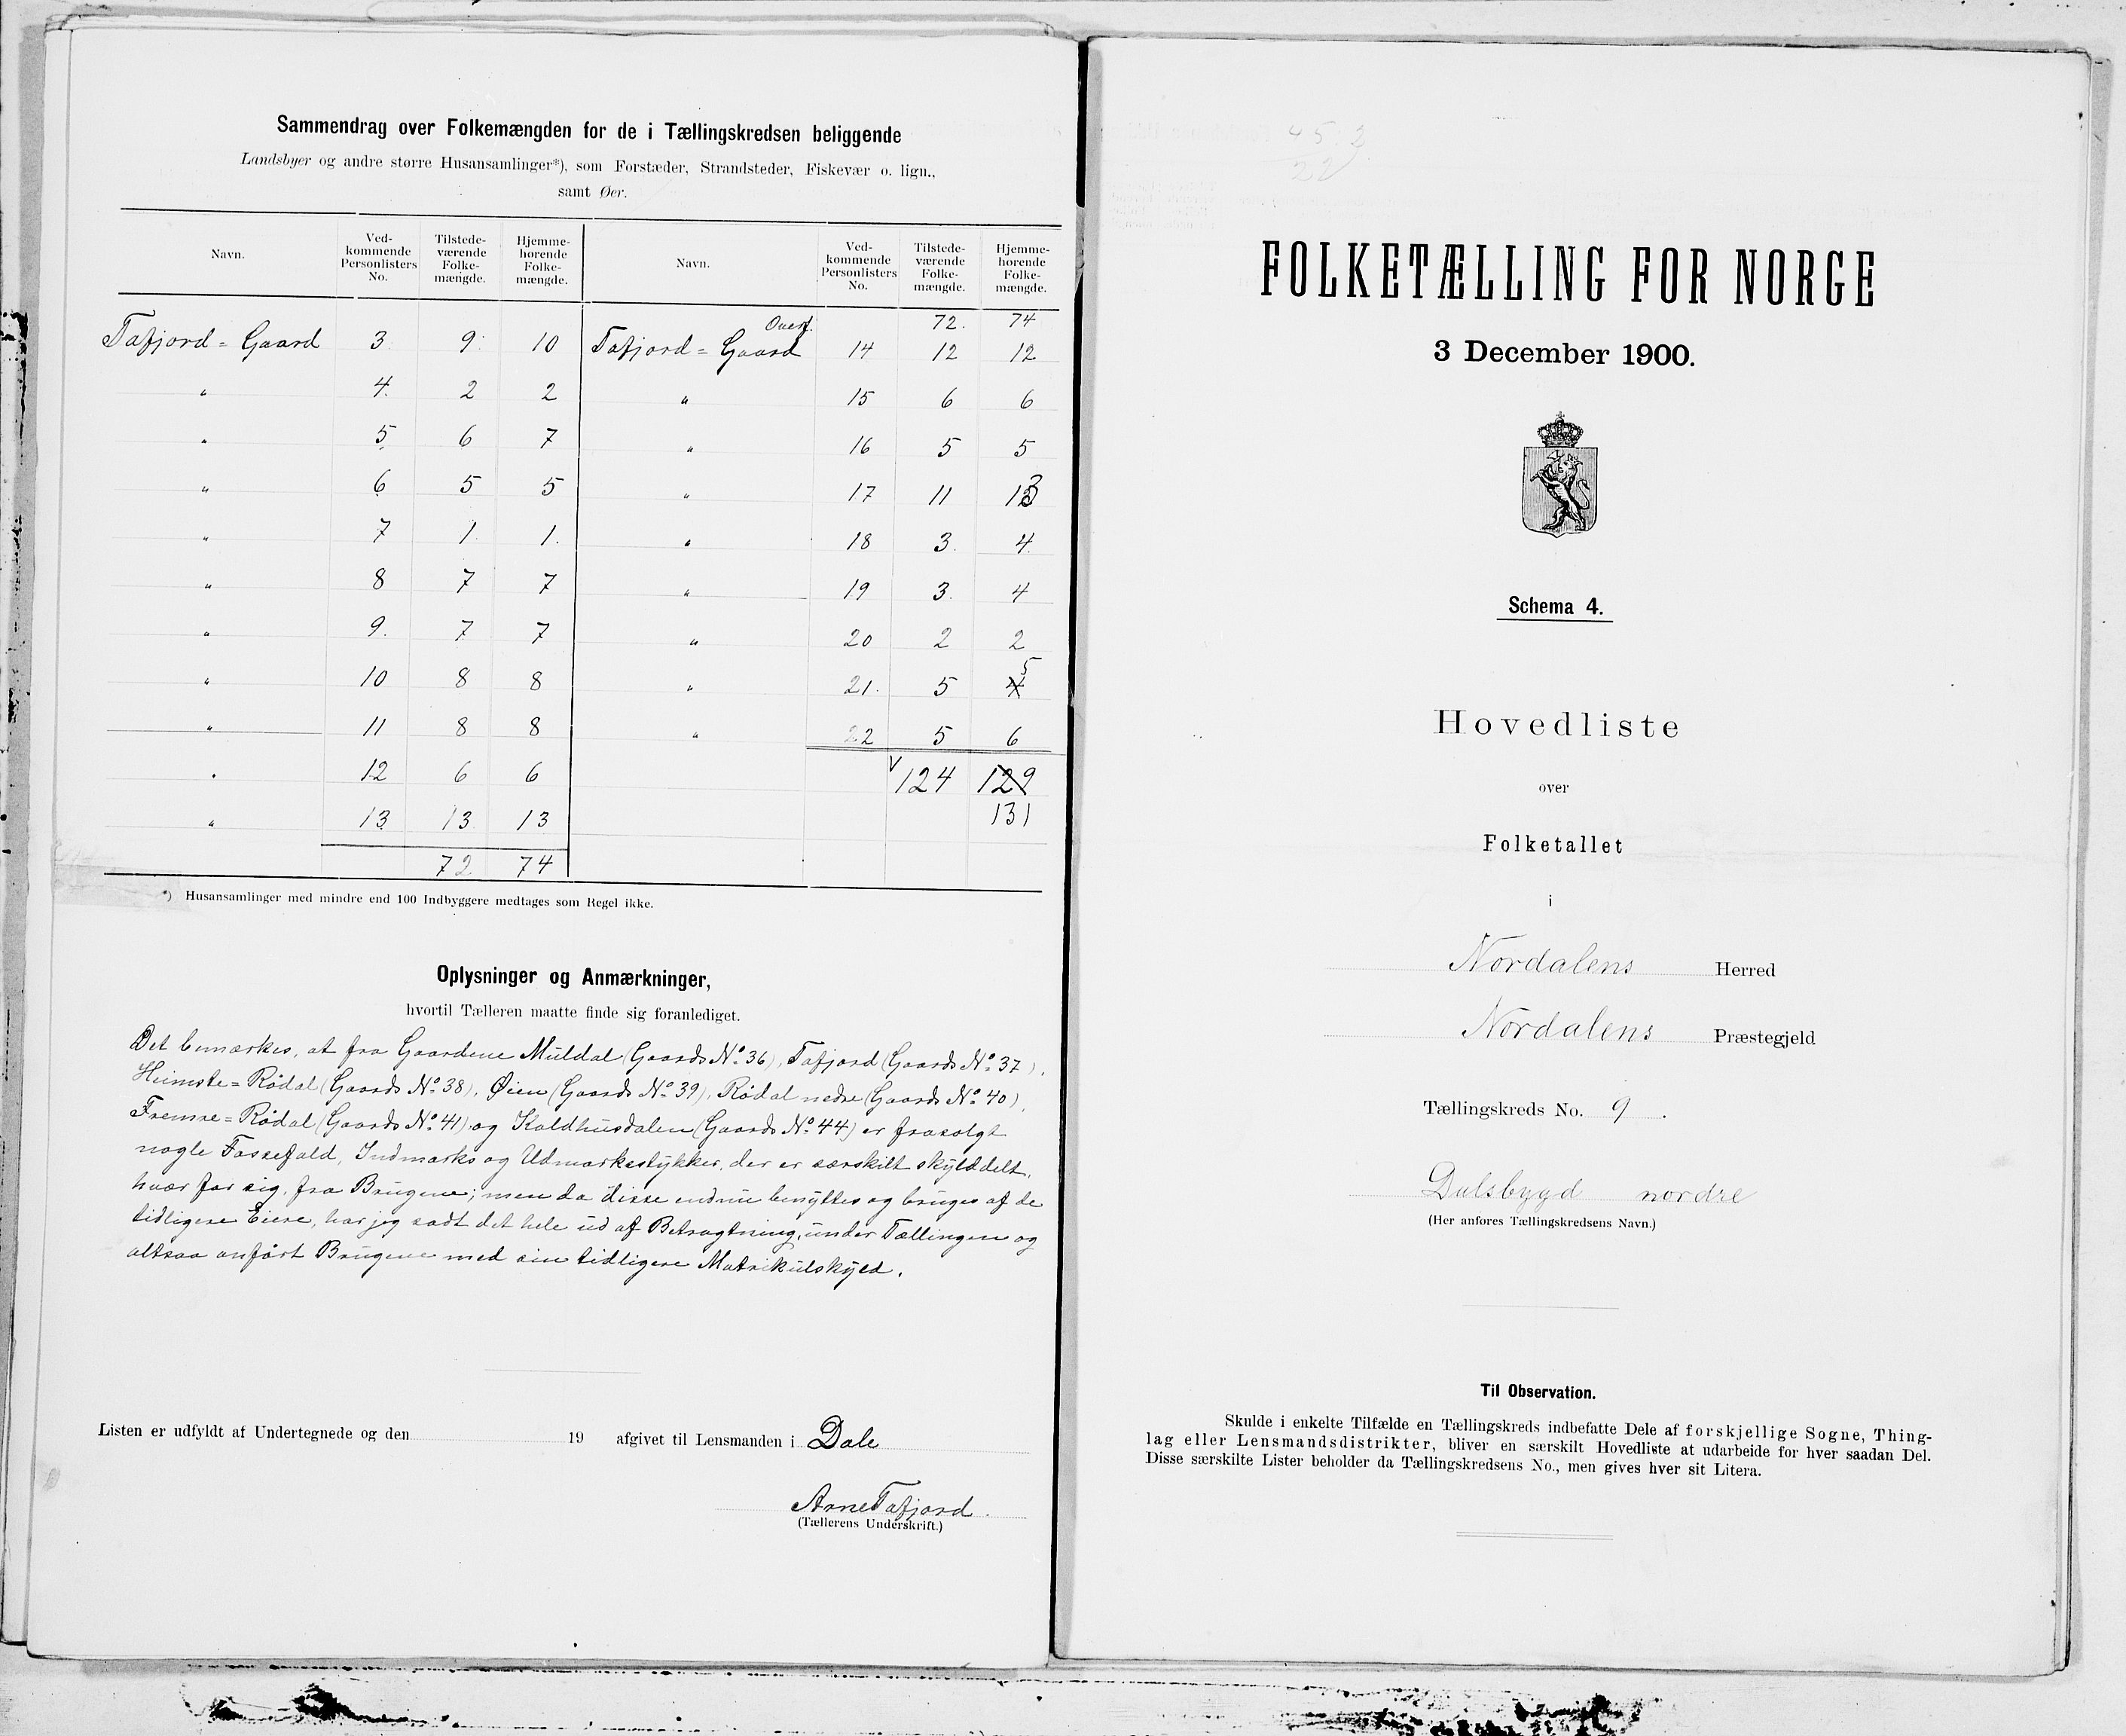 Sammendrag over Folkemængden for de i Tællingskredsen beliggende
Landsbyer og andre større Husansamlinger*), som Forstæder, Strandsteder, Fiskevær o. lign.,
samt Øer.
Navn. Ved-kommende Personlisters No. Tilstede-værende Folke-mængde. Hjemme-hørende Folke-mængde. Navn. Ved-kommende Personlisters No. Tilstede-værende Folke-mængde. Hjemme-hørende Folke-mængde.
Overf. 72. 74
Tafjord = Gaard 3 9 10 Tafjord = Gaard 14 12 12
" 4. 2 2 " 15 6 6
" 5. 6 7 " 16 5 5
" 6 5 5 " 17 11 13
" 7 1. 1. " 18 3. 4
" 8 7 7 " 19 3. 4
" 9. 7 7 " 20 2 2
" 10 8 8 " 21. 5 4 5
" 11 8 8 " 22 5 6
" 12 6 6 124 129
" 13 13 13 131
72 74
*) Husansamlinger med mindre end 100 Indbyggere medtages som Regel ikke.
Oplysninger og Anmærkninger,
hvortil Tælleren maatte finde sig foranlediget.
Det bemærkes, at fra Gaardene Muldal (Gaards No. 36), Tafjord (Gaards No. 37),
Heimste = Rødal (Gaards No. 38), Øien (Gaards No. 39), Rødal nedre (Gaards No. 40),
Fremre = Rødal (Gaards No. 41) og Kaldhusdalen (Gaards No. 44) er frasolgt
nogle Fossefald, Indmarks og Udmarksstykker, der er særskilt skylddelt,
hvær for sig, fra Brugene; men da disse endnu benyttes og bruges af de
tidligere Eiere, har jeg sadt det hele ud af Betragtning, under Tællingen og
altsaa anført Brugene med sin tidligere Matrikulskyld.
Listen er udfyldt af Undertegnede og den 19 afgivet til Lensmanden i Dale
Arne Tafjord.
(Tællerens Underskrift.)
45.2
22
FOLKETÆLLING FOR NORGE
3 December 1900.
Schema 4.
Hovedliste
over
Folketallet
i
Nordalens Herred
Nordalens Præstegjeld
Tællingskreds No. 9.
Dalsbygd nordre
(Her anføres Tællingskredsens Navn.)
Til Observation.
Skulde i enkelte Tilfælde en Tællingskreds indbefatte Dele af forskjellige Sogne, Thing-
lag eller Lensmandsdistrikter, bliver en særskilt Hovedliste at udarbeide for hver saadan Del.
Disse særskilte Lister beholder da Tællingskredsens No., men gives hver sit Litera.